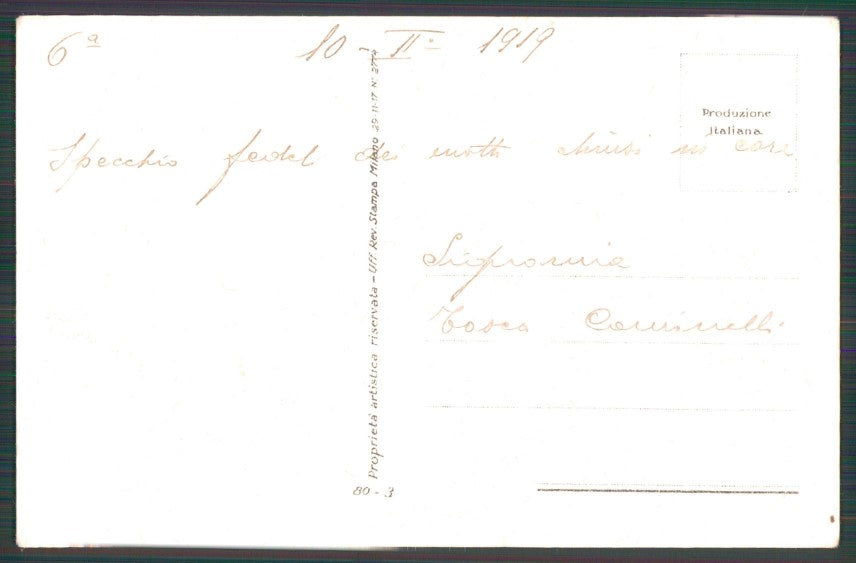 6ª 10 - II° 1919
Specchio fedel dei motti chiusi in core
Produzione
Italiana
Signorina
Tosca Caminelli
Proprietà artistica riservata - Uff. Rev. Stampa Milano 29-11-17 N°
80 - 3